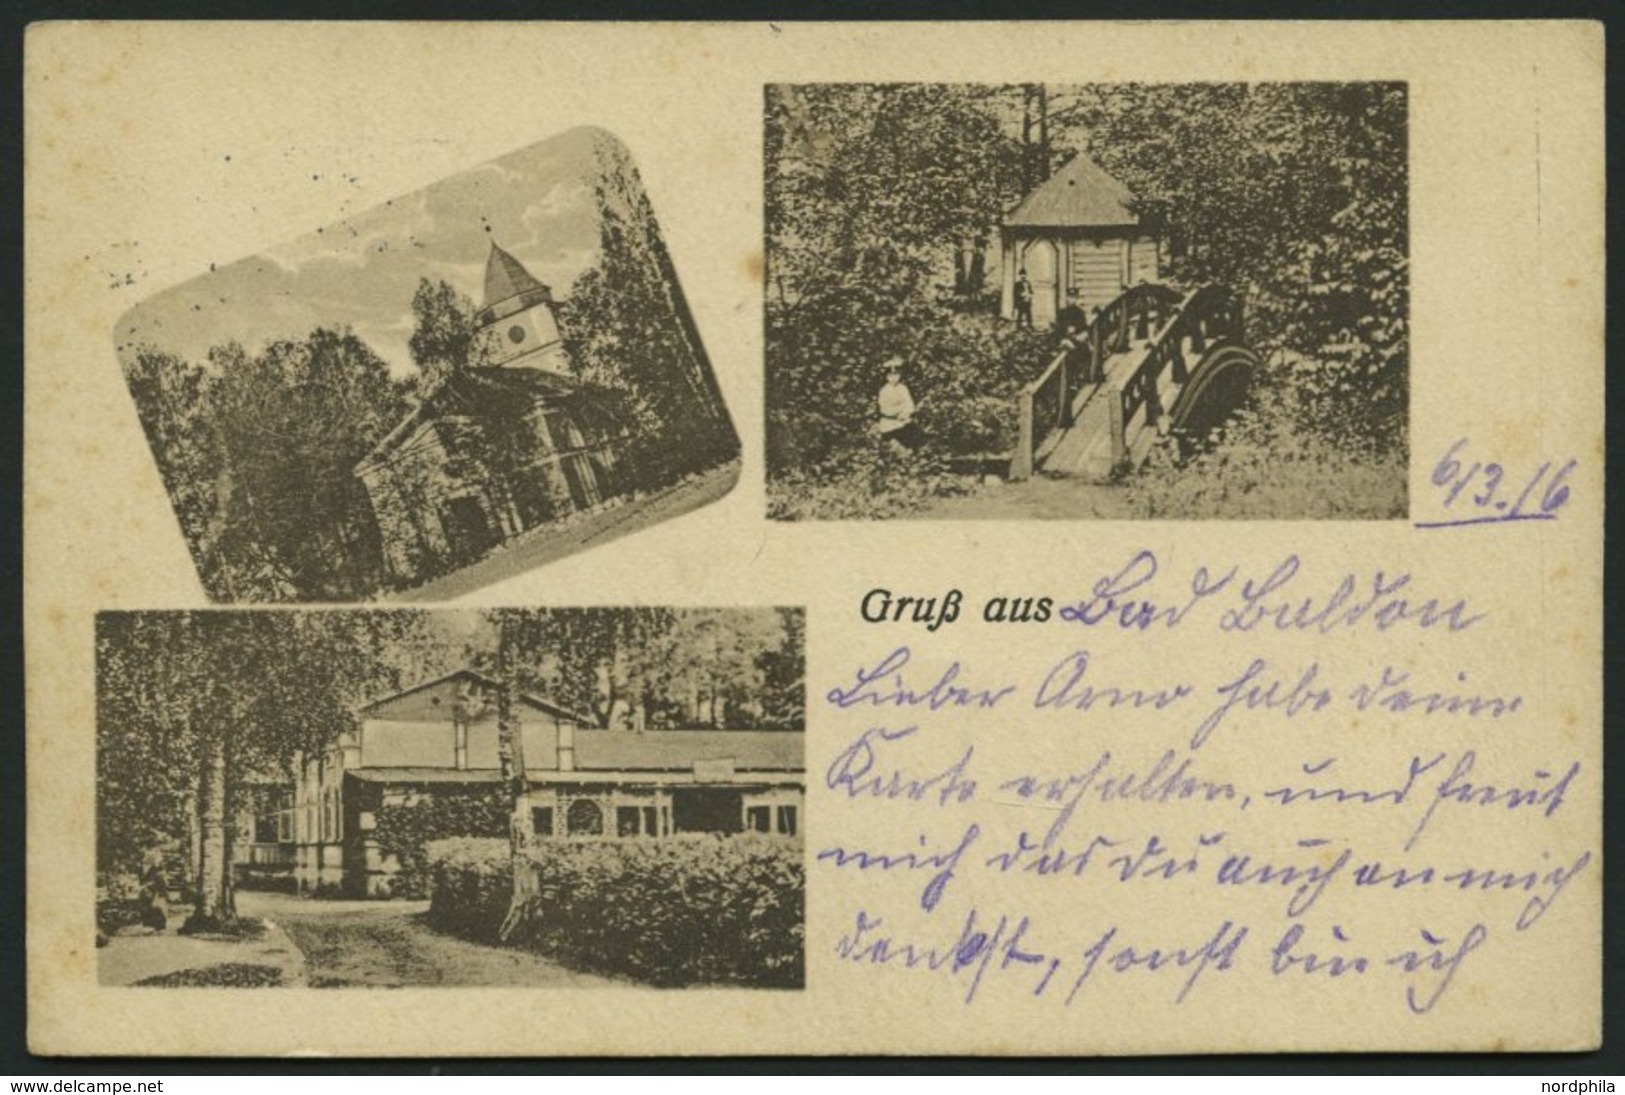 6/3.16
Gruß aus Bad Baldon
Lieber Arno habe deine
Karte erhalten, und freut
mich das du auch an mich
denkst, sonst bin ich
www.delcampe.net
nordphila